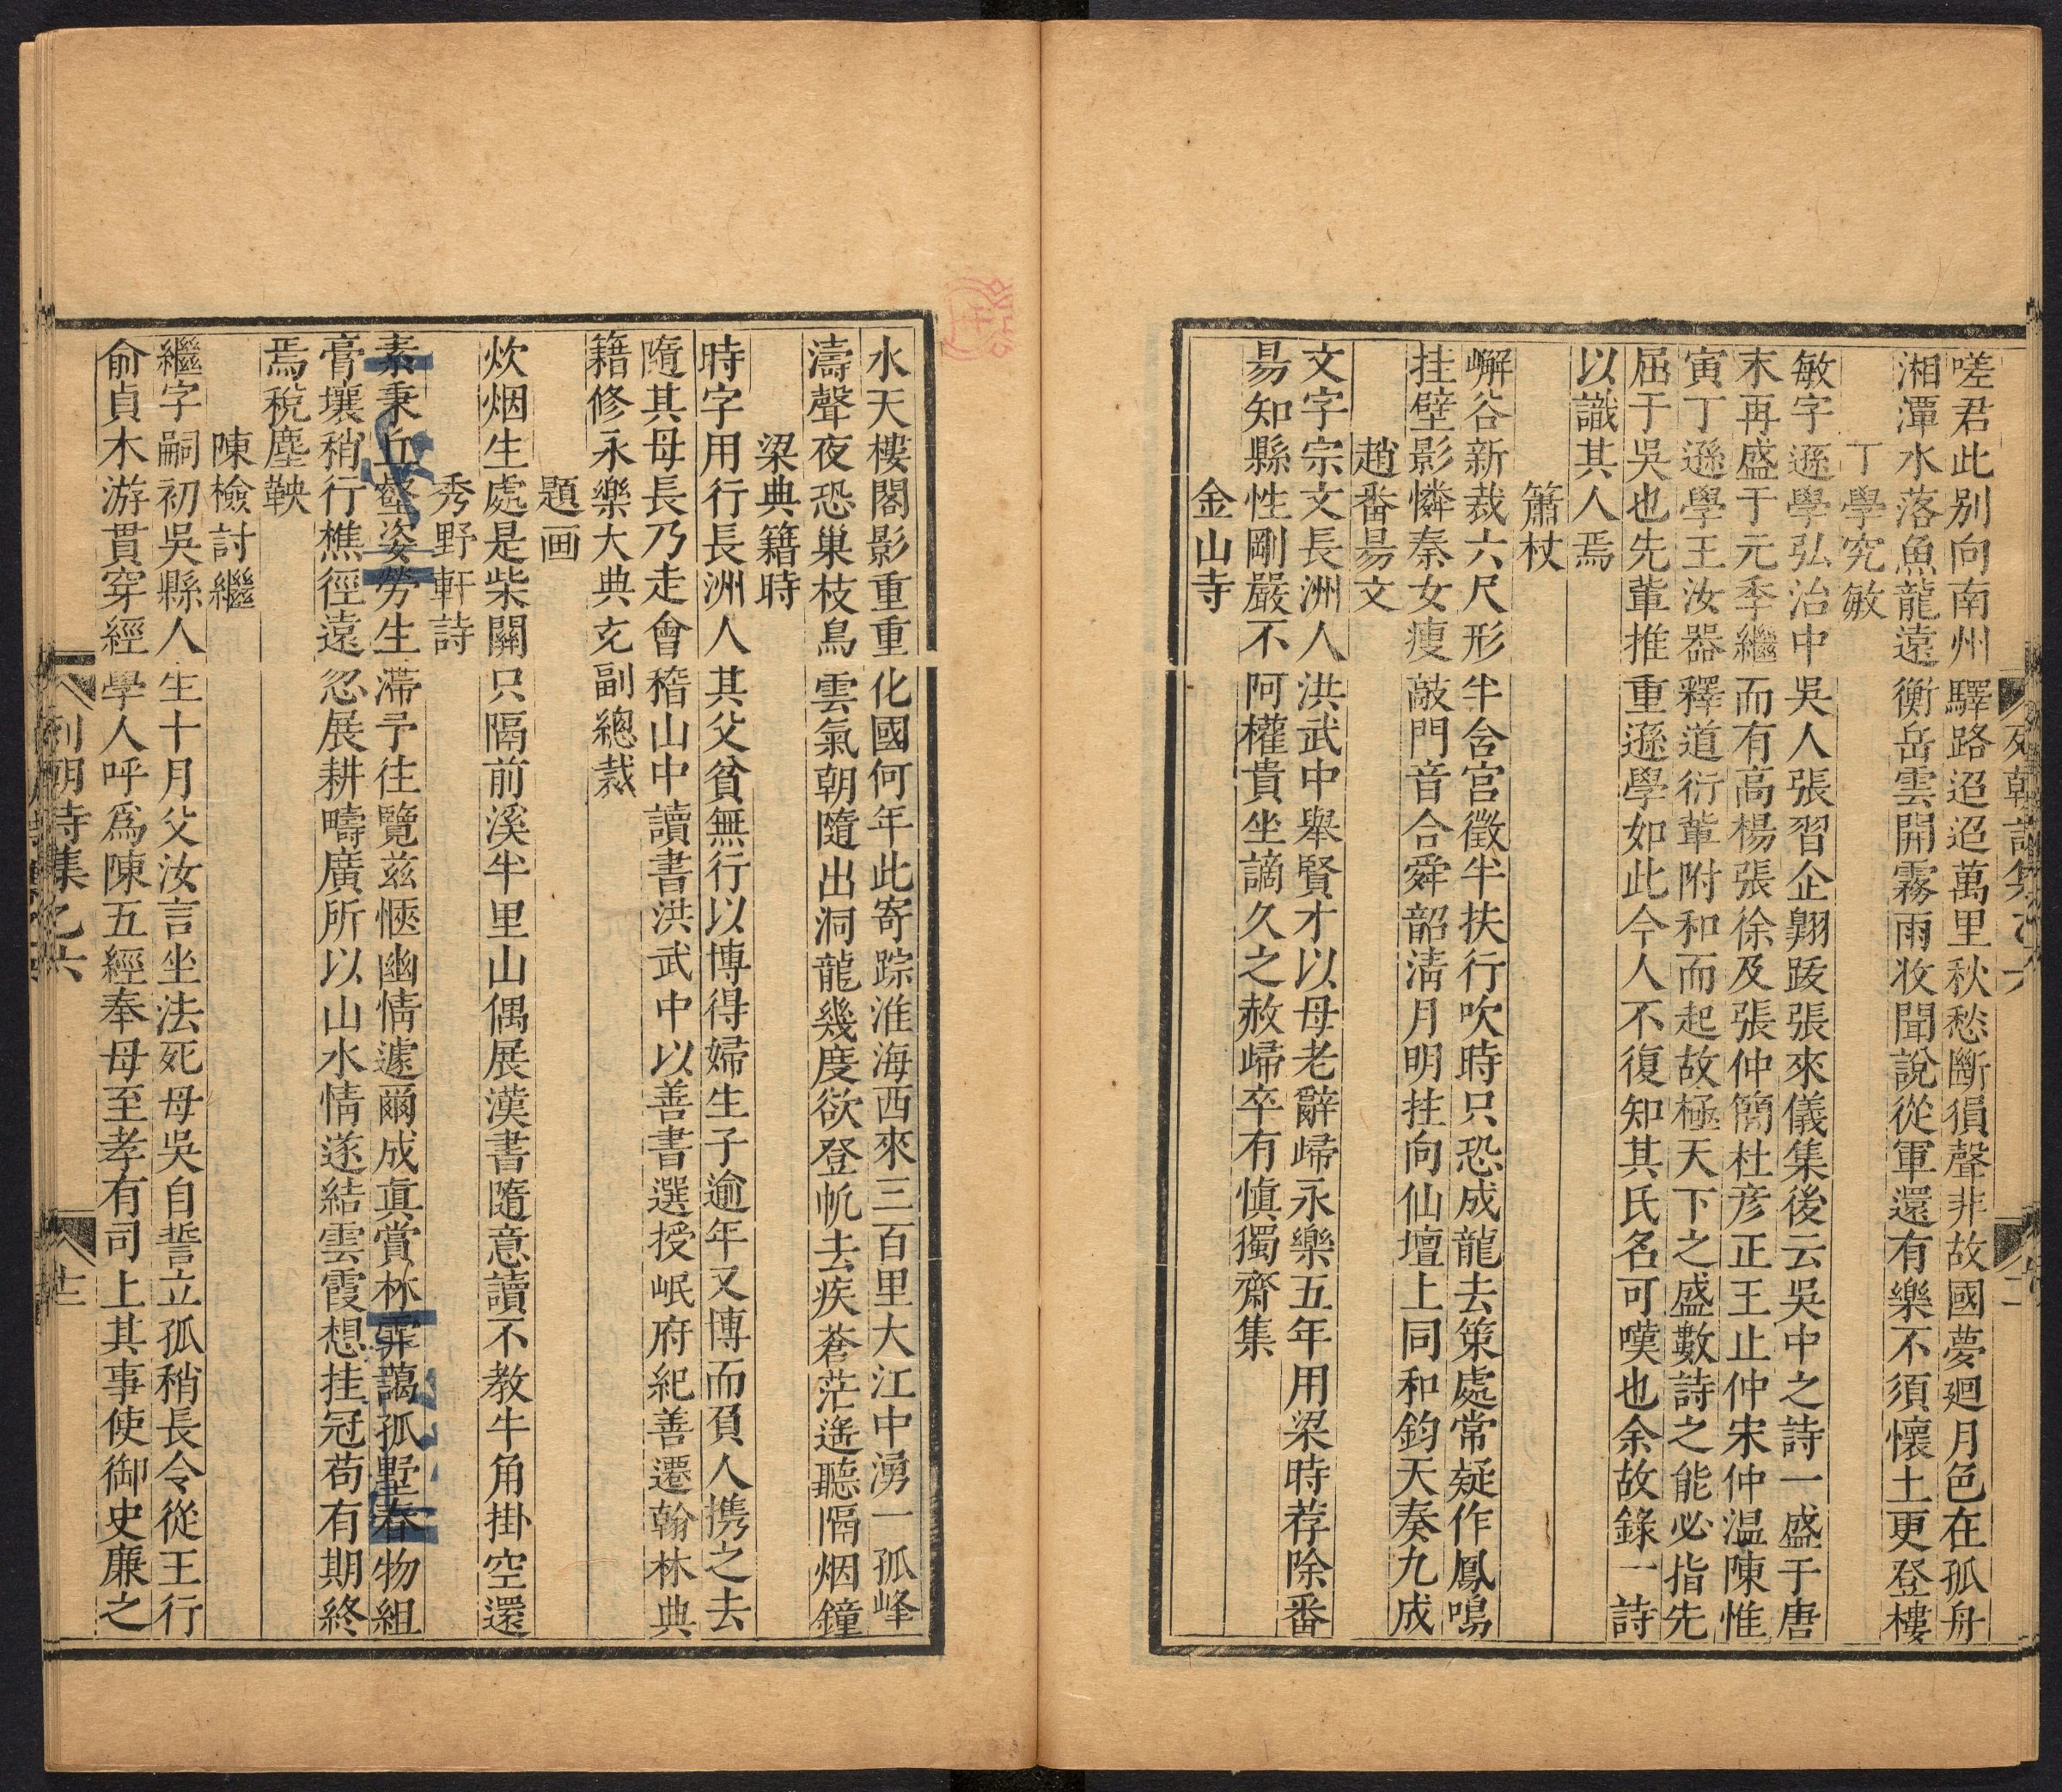 嗟君此别向南州驛路迢迢萬里秋愁斷猿聲非故國夢廻月色在孤舟
湘潭水落魚龍遠衡岳雲開霧雨收聞說從軍還有樂不須懷土更登樓
丁學究敏
敏字遜學弘治中吳人張習企翱䟦張來儀集後云吳中之詩一盛于唐
末再盛于元季繼而有高楊張徐及張仲簡杜彦正王止仲宋仲温陳惟
寅丁遜學王汝器釋道衍輩附和而起故極天下之盛數詩之能必指先
屈于吳也先輩推重遜學如此今人不復知其氏名可嘆也余故錄一詩
以識其人焉
簫杖
嶰谷新裁六尺形半含宫徵半扶行吹時只恐成龍去策處常疑作鳳鳴
挂壁影憐秦女瘦敲門音合舜韶淸月明拄向仙壇上同和鈞天奏九成
趙番昜文
文字宗文長洲人洪武中舉賢才以母老辭歸永樂五年用梁時荐除番
昜知縣性剛嚴不阿權貴坐謫久之赦歸卒有愼獨齋集
金山寺
水天樓閣影重重化國何年此寄踪淮海西來三百里大江中湧一孤峰
濤聲夜恐巢枝鳥雲氣朝隨出洞龍幾度欲登帆去疾蒼茫遙聽隔烟鐘
梁典籍時
時字用行長洲人其父貧無行以博得婦生子逾年又博而負人携之去
隨其母長乃走會稽山中讀書洪武中以善書選授岷府紀善遷翰林典
籍修永樂大典充副總裁
題画
炊烟生處是柴關只隔前溪半里山偶展漢書隨意讀不教牛角掛空還
秀野軒詩
素秉丘壑姿勞生滯予往覽兹愜幽情遽爾成眞賞林霏藹孤墅春物組
膏壤稍行樵徑遠忽展耕疇廣所以山水情遂結雲霞想挂冠苟有期終
焉稅塵鞅
陳檢討繼
繼字嗣初吳縣人生十月父汝言坐法死母吳自誓立孤稍長令從王行
俞貞木游貫穿經學人呼爲陳五經奉母至孝有司上其事使御史廉之
列朝詩集乙六